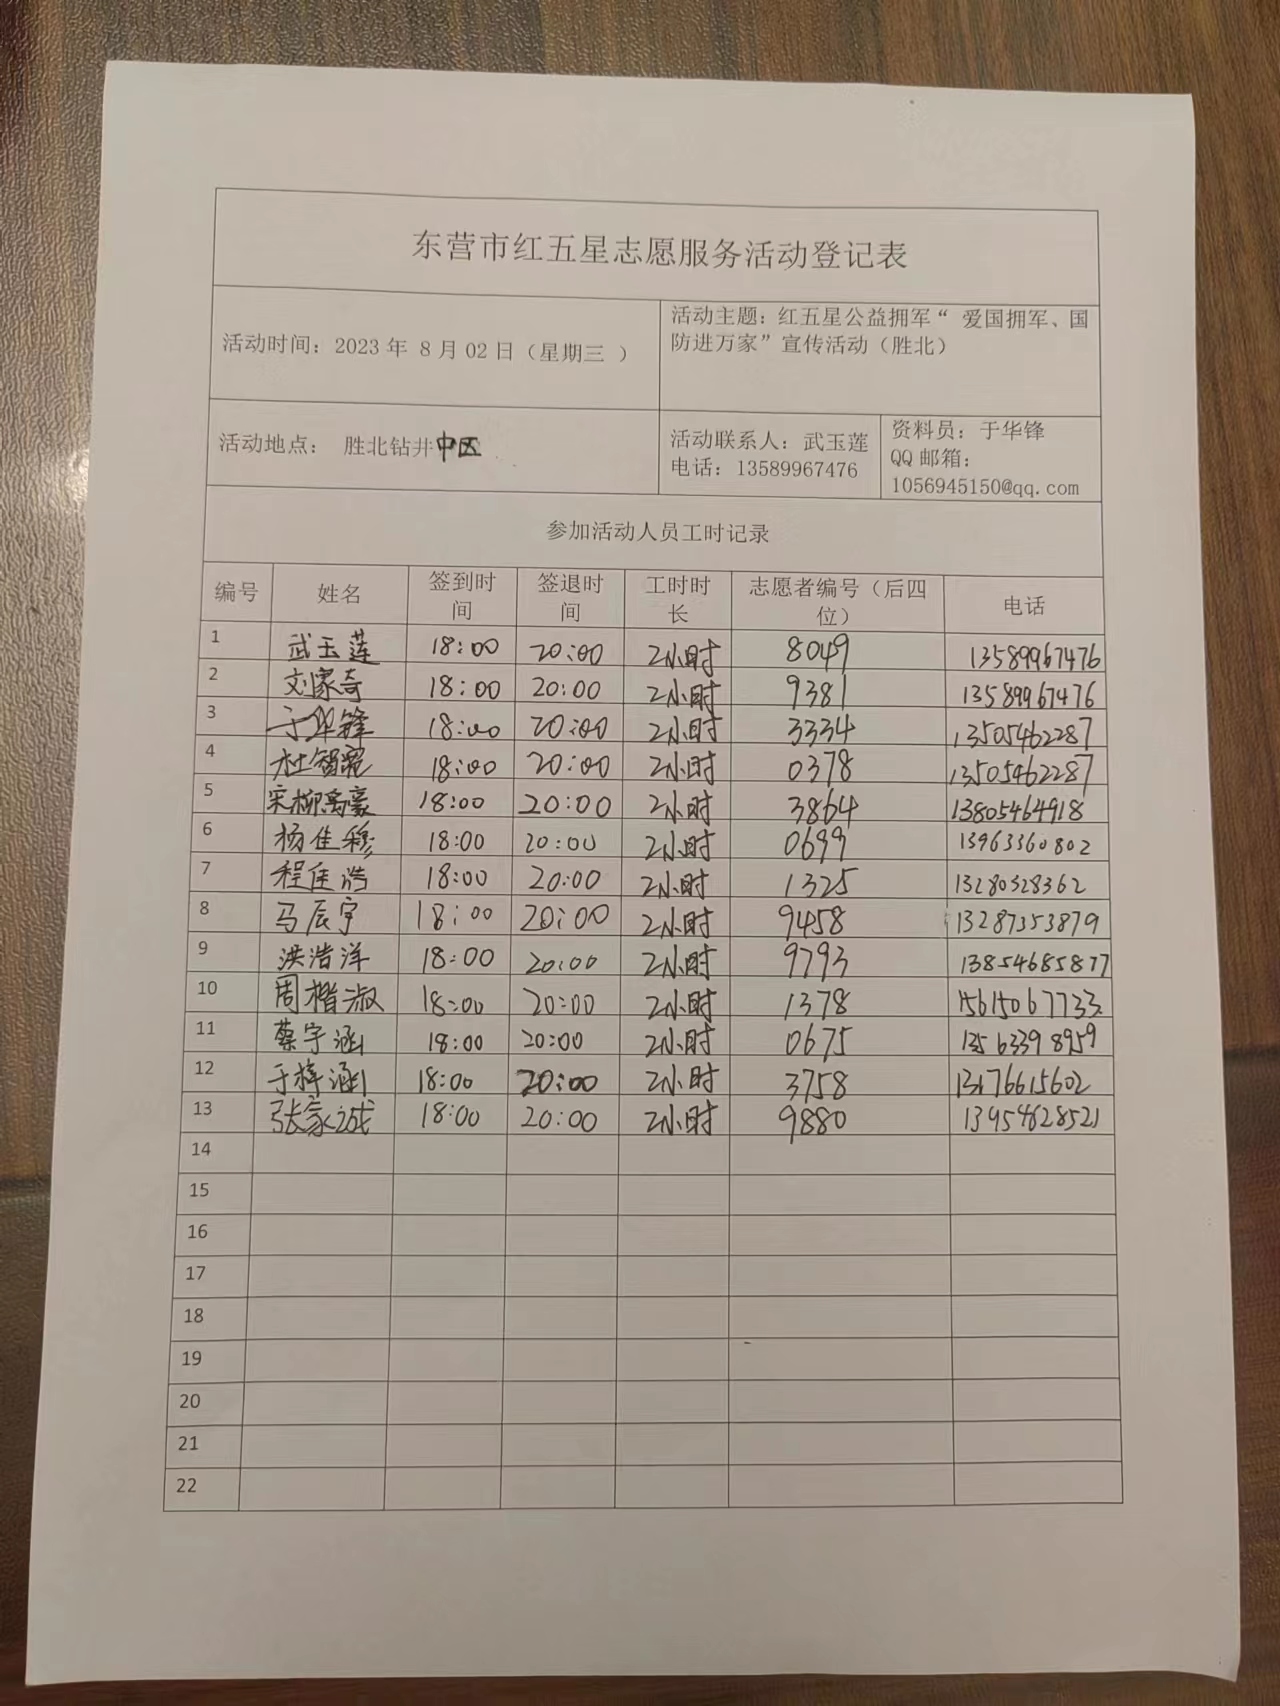 东营市红五星志愿服务活动登记表
活动时间：2023年 8月02日（星期三 ）
活动主题：红五星公益拥军“ 爱国拥军、国
防进万家”宣传活动（胜北）
活动地点： 胜北钻井中区
活动联系人：武玉莲
电话：13589967476
资料员：于华锋
QQ邮箱：
1056945150@qq.com
参加活动人员工时记录
编号 姓名 签到时间 签退时间 工时时长 志愿者编号（后四位） 电话
1 武玉莲 18:00 20:00 2小时 8049 13589967476
2 刘家奇 18:00 20:00 2小时 9381 13589967476
3 于华锋 18:00 20:00 2小时 3334 13505462287
4 杜智 18:00 20:00 2小时 0378 13505462287
5 宋柳禹豪 18:00 20:00 2小时 3864 13805464918
6 杨佳穆 18:00 20:00 2小时 0699 13963360802
7 程佳浩 18:00 20:00 2小时 1325 13280328362
8 马辰宇 18:00 20:00 2小时 9458 13287353879
9 洪浩洋 18:00 20:00 2小时 9793 13854685877
10 周楷淑 18:00 20:00 2小时 1378 15615067733
11 蔡宇涵 18:00 20:00 2小时 0675 13563398959
12 于梓涵 18:00 20:00 2小时 3758 13176615602
13 张家诚 18:00 20:00 2小时 9880 13954628521
14
15
16
17
18
19
20
21
22